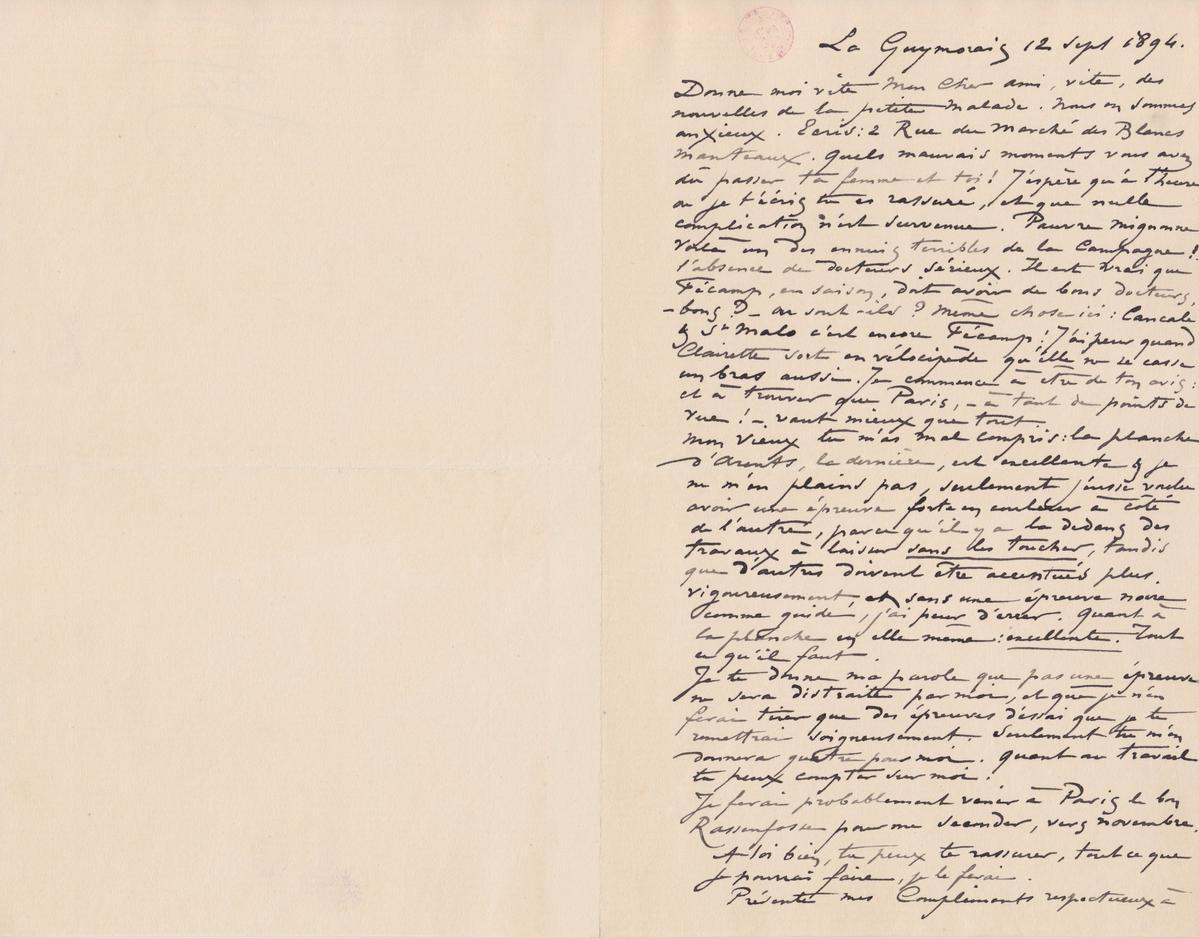 La Guymorais 12 Sept 1894.
Donne moi vite Mon Cher ami, vite, des
nouvelles de la petite Malade. Nous en sommes
anxieux. Ecris: 2 Rue du Marché des Blancs
Manteaux. Quels mauvais moments vous avez
dû passer ta femme et toi! J'espère qu'à l'heure
où je t'écris tu es rassuré, et que nulle
complication n'est survenue. Pauvre mignonne
voilà un des ennuis terribles de la Campagne!
l'absence de docteurs sérieux. Il est vrai que
Fécamp, en saison, doit avoir de bons docteurs,
– bons? – où sont-ils? Même chose ici: Cancale
& St Malo c'est encore Fécamp! J'ai peur quand
Clairette sort en vélocipède qu'elle ne se casse
un bras aussi. Je commence à être de ton avis:
et à trouver que Paris, – à tant de points de
vue! –, vaut mieux que tout.
Mon vieux tu m'as mal compris: la planche
d', la dernière, est excellente & je
ne m'en plains pas, seulement j'eusse voulu
avoir une épreuve forte en couleur à côté
de l'autre, parce qu'il y a la dedans des
travaux à laisser sans les toucher, tandis
que d'autres doivent être accentués plus
vigoureusement et sans une épreuve noire
comme guide, j'ai peur d'errer. Quant à
la planche en elle même: excellente. Tout
ce qu'il faut.
Je te donne ma parole que pas une épreuve
ne sera distraite par moi, et que je n'en
ferai tirer que des épreuves d'essai que je te
remettrai soigneusement. Seulement tu m'en
donnera quatre pour moi. Quant au travail
tu peux compter sur moi.
Je ferai probablement venir à Paris le bon
Rassenfosse pour me seconder, vers novembre.
A toi bien, tu peux te rassurer, tout ce que
je pourrai faire, je le ferai.
Présente mes Compliments respectueux à